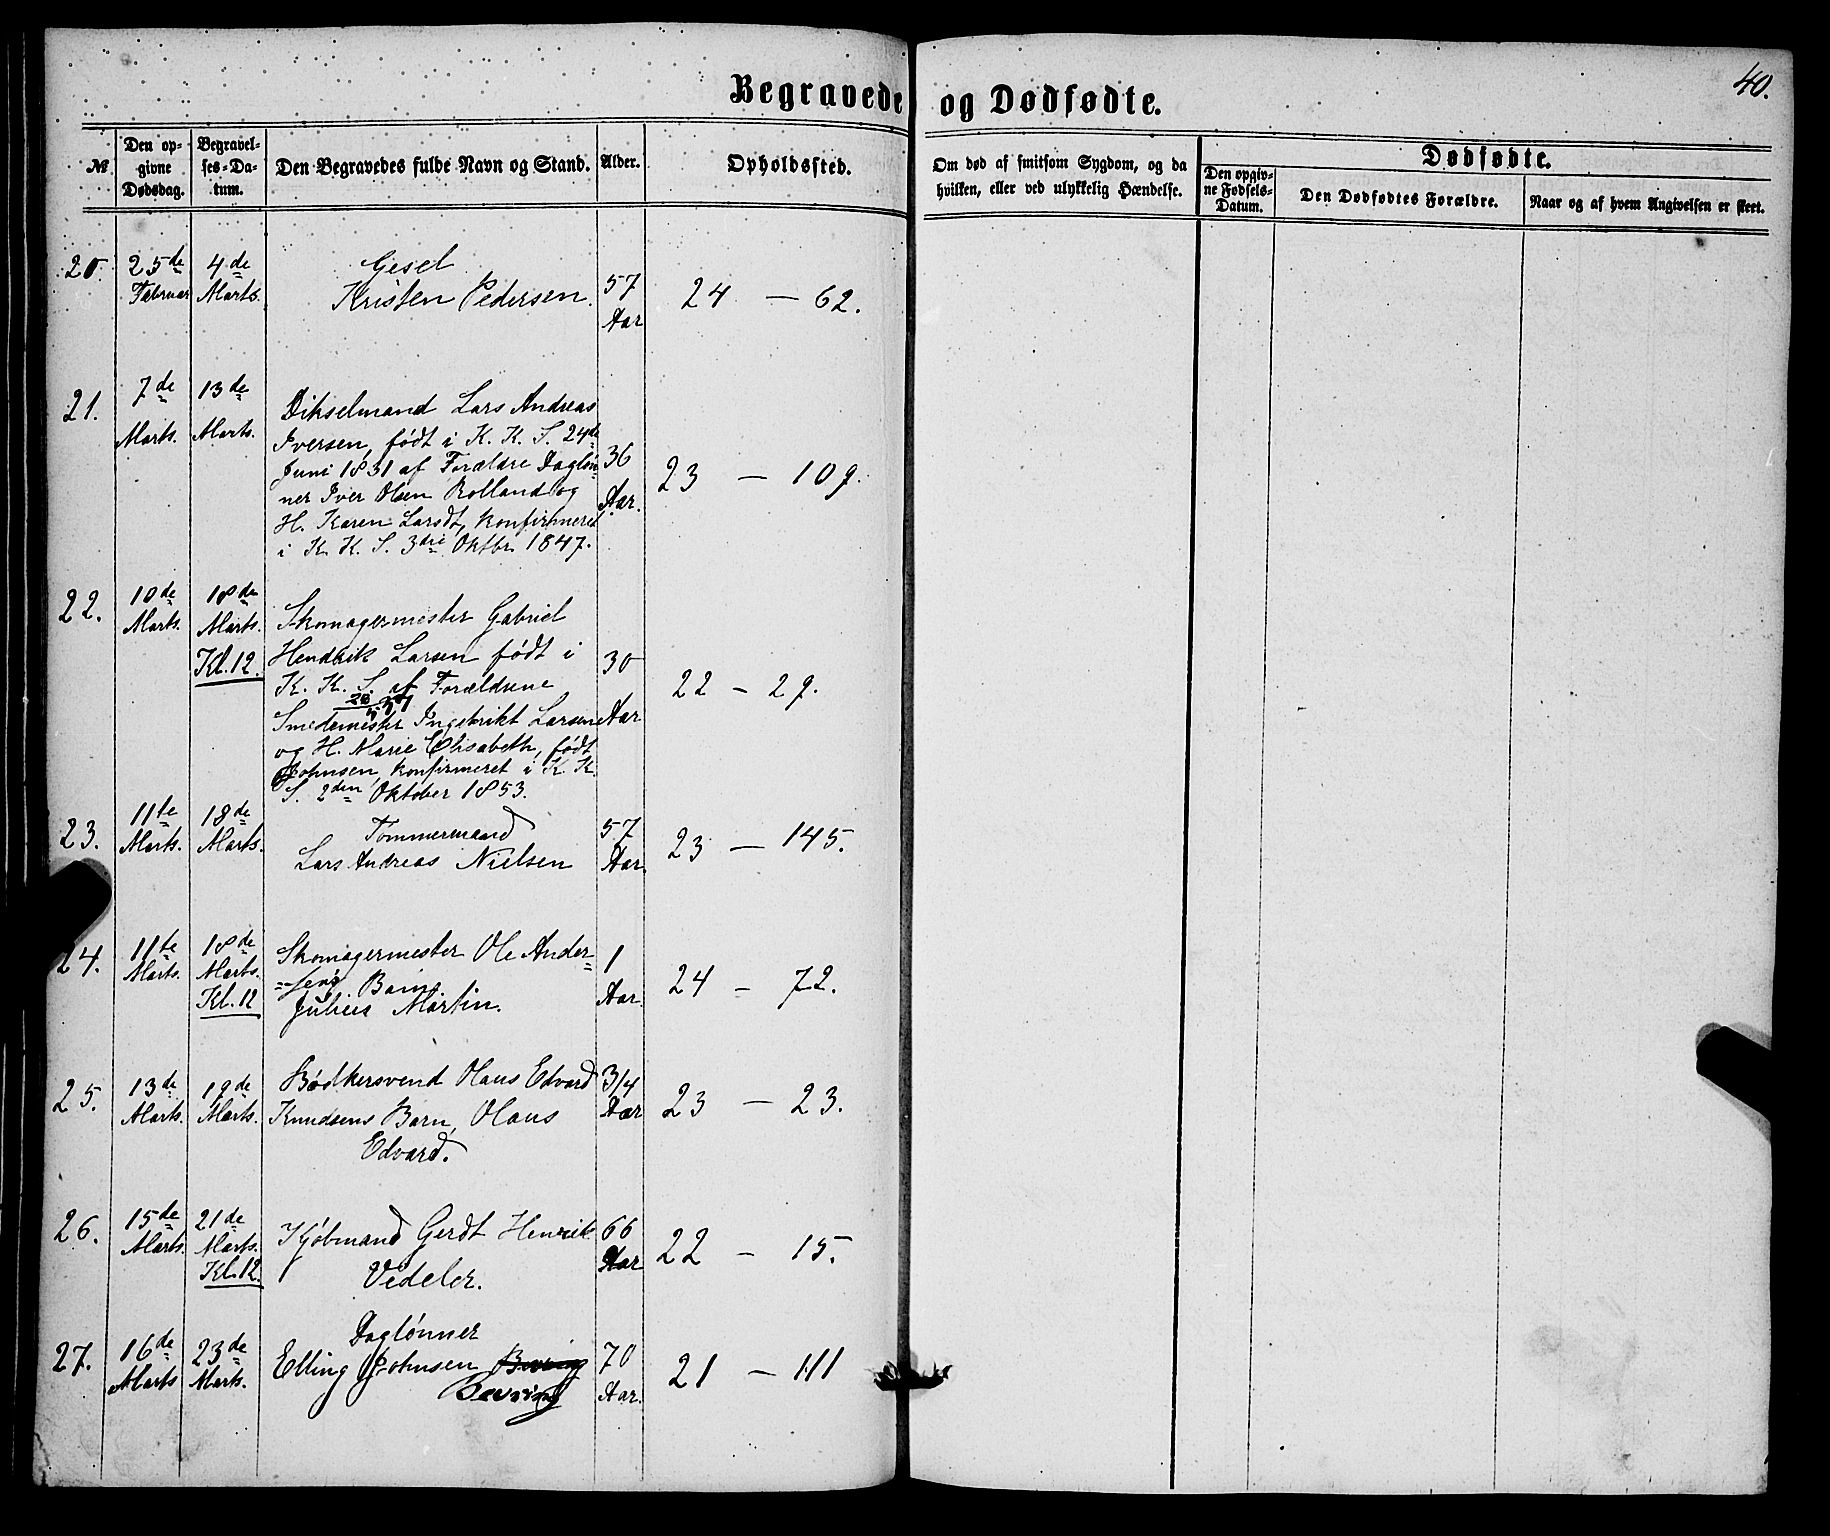 40.
Begravede og Dødfødte.
№
Den opgivne Dødsdag.
Begravelses-Datum.
Den Begravedes fulde Navn og Stand.
Alder.
Opholdssted.
Om død af smitsom Sygdom, og da
hvilken, eller ved ulykkelig Hændelse.
Dødfødte.
Den opgivne Fødsels-Datum.
Den Dødfødtes Forældre.
Naar og af hvem Angivelsen er skeet.
20. 25de Februar 4de Marts. 57 Aar 24 — 62.
Gesel
Kristen Pedersen.
21. 7de Marts. 13de Marts. 36 Aar. 23 — 109.
Lars Andreas
Iversen, født i K. K. S. 24de
Juni 1831 af Forældre Dagløn-
ner Iver Olsen Rolland og
H. Karen Larsdt, konfirmeret
i K. K. S. 3die Oktbr 1847.
22. 10de Marts. 18de Marts. Kl. 12. 30 Aar 22 — 29.
Skomagermester Gabriel
Hendrik Larsen født i
K. K. S. af Forældrene
Smedemester Ingebrikt Larsen
og H. Marie Elisabeth, født
Johnsen, konfirmeret i K. K.
S. 2den Oktober 1853.
23. 11te Marts. 18de Marts. 57 Aar. 23 — 145.
Tømmermand
Lars Andreas Nielsen
24. 11te Marts. 18de Marts. Kl. 12 1 Aar. 24 — 72.
Skomagermester Ole Ander-
-sens Barn,
Julius Martin.
25. 13de Marts. 19de Marts. 3/4 Aar 23 — 23.
Bødkersvend Olaus Edvard
Knudsens Barn, Olaus
Edvard.
26. 15de Marts. 21de Marts. Kl. 12. 66 Aar 22 — 15.
Kjøbmand Gerdt Henrik
Vedeler.
27. 16de Marts 23de Marts. 70 Aar. 21 — 111
Daglønner
Elling Johnsen
Bevring